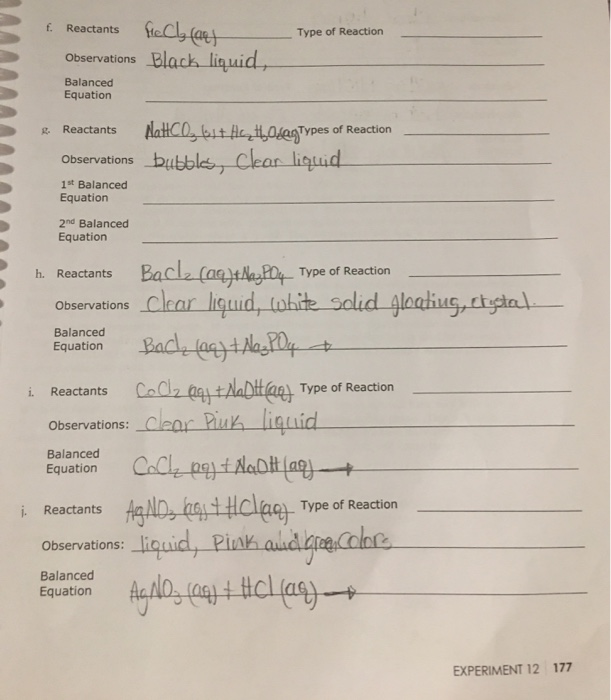 f. Reactants FeCl₃ (aq) Type of Reaction
Observations Black liquid,
Balanced
Equation
g. Reactants NaHCO₃ (s) + HC₂H₃O₂(aq) Types of Reaction
Observations bubbles, Clear liquid
1st Balanced
Equation
2nd Balanced
Equation
h. Reactants BaCl₂ (aq) + Na₃PO₄ Type of Reaction
Observations Clear liquid, white solid floating, crystal.
Balanced
Equation BaCl₂ (aq) + Na₃PO₄ →
i. Reactants CoCl₂ (aq) + NaOH (aq) Type of Reaction
Observations: Clear Pink liquid
Balanced
Equation CoCl₂ (aq) + NaOH (aq) →
j. Reactants AgNO₃ (aq) + HCl (aq) Type of Reaction
Observations: liquid, Pink and green colors
Balanced
Equation AgNO₃ (aq) + HCl (aq) →
EXPERIMENT 12 177